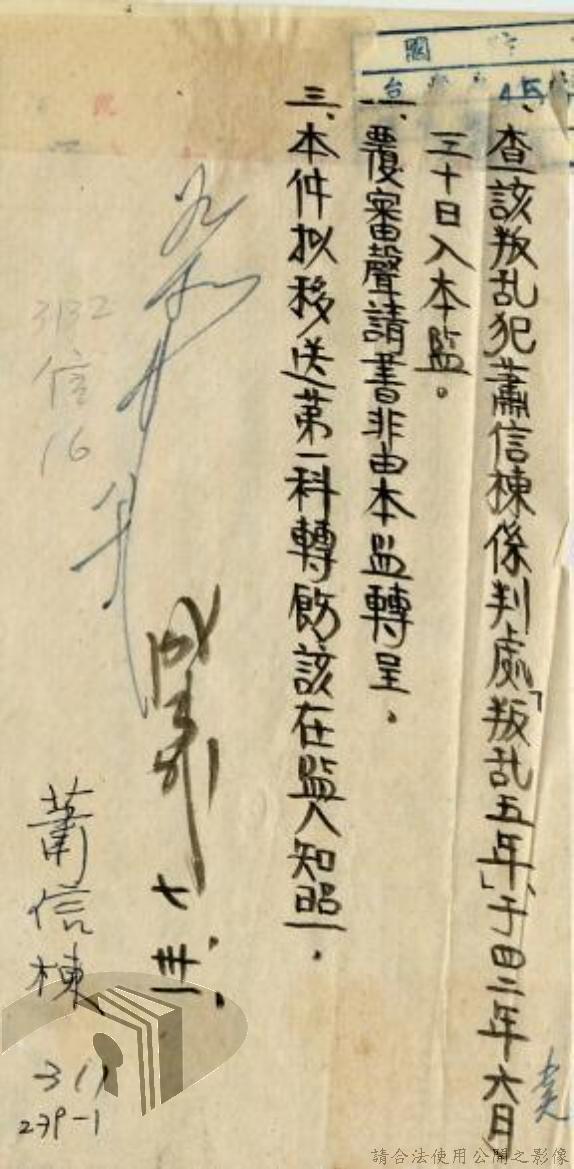 、查該叛乱犯蕭信棟係判處「叛乱五年」、于四二年六月
三十日入本監。
二、覆審聲請書非由本監轉呈。
三、本件拟移送第一科轉飭該在監人知照。
七、卅、
3132
信
16
蕭信棟
311
239-1
請合法使用公開之影像